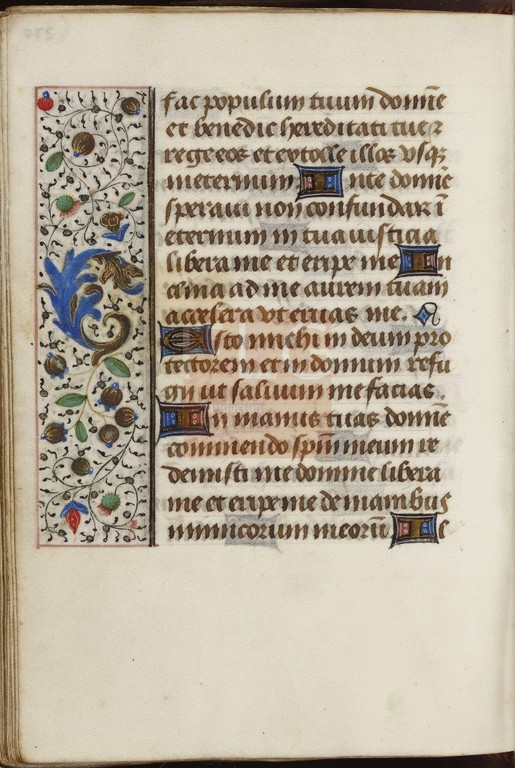 fac populum tuum domīe
et benedic hereditati tue ⁊
rege eos et extolle illos vsqȝ
in eternum In te domīe
speraui non confundar ī
eternum in tua iusticia
libera me et eripe me In
clina ad me aurem tuam
accelera vt eruas me.
Esto michi in deum pro
tectorem et in domum refu
gii ut saluum me facias.
In manus tuas domīe
commendo spm̄ meum re
demisti me domine libera
me et eripe me de manibus
inimicorum meorū De